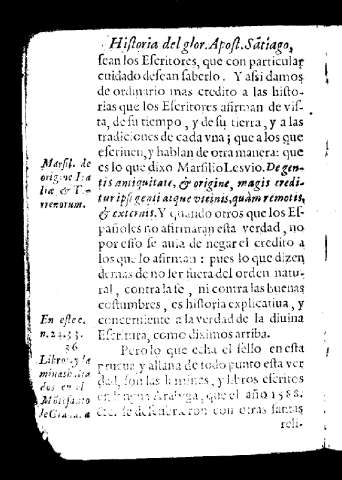 Historia del glor. Apost. Sātiago,
sean los Escritores, que con particular
cuidado desean saberlo. Y assi damos
de ordinario mas credito a las histo-
rias que los Escritores afirman de vis-
ta, de su tiempo, y de su tierra, y a las
tradiciones de cada vna; que a los que
escriuen, y hablan de otra manera: que
es lo que dixo Marsilio Lesvio. De gen-
tis antiquitate, & origine, magis credi-
tur ipsi genti atque vicinis, quàm remotis,
& externis. Y quando otros que los Es-
pañoles no afirmaran esta verdad, no
por esso se auia de negar el credito a
los que lo afirman: pues lo que dizen
demas de no ser fuera del orden natu-
ral, contra la fe, ni contra las buenas
costumbres, es historia explicatiua, y
concerniente a la verdad de la diuina
Escritura, como diximos arriba.
Pero lo que echa el sello en esta
prueua y allana de todo punto esta ver
dad, son las laminas, y libros escritos
en lengua Arabiga, que el año 1588.
se descubrieron con otras santas
reli-
Marsil. de
origine Ita
liæ, & T
rrenorum.
En este c.
n. 24. 33.
36.
Libros y la
minas halla
dos en el
Mōte santo
de Granada